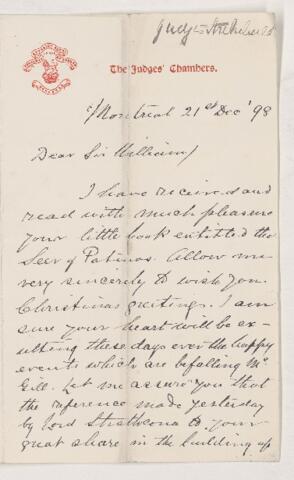 The Judges' Chambers.
Montreal 21st Dec '98
Dear Sir William,
I have received and
read with much pleasure
your little book entitled the
Seer of Patmos. Allow me
very sincerely to wish you
Christmas greetings. I am
sure your heart will be ex-
ulting these days over the happy
events which are befalling Mc
Gill. Let me assure you that
the reference made yesterday
by Lord Strathcona to your
great share in the building up